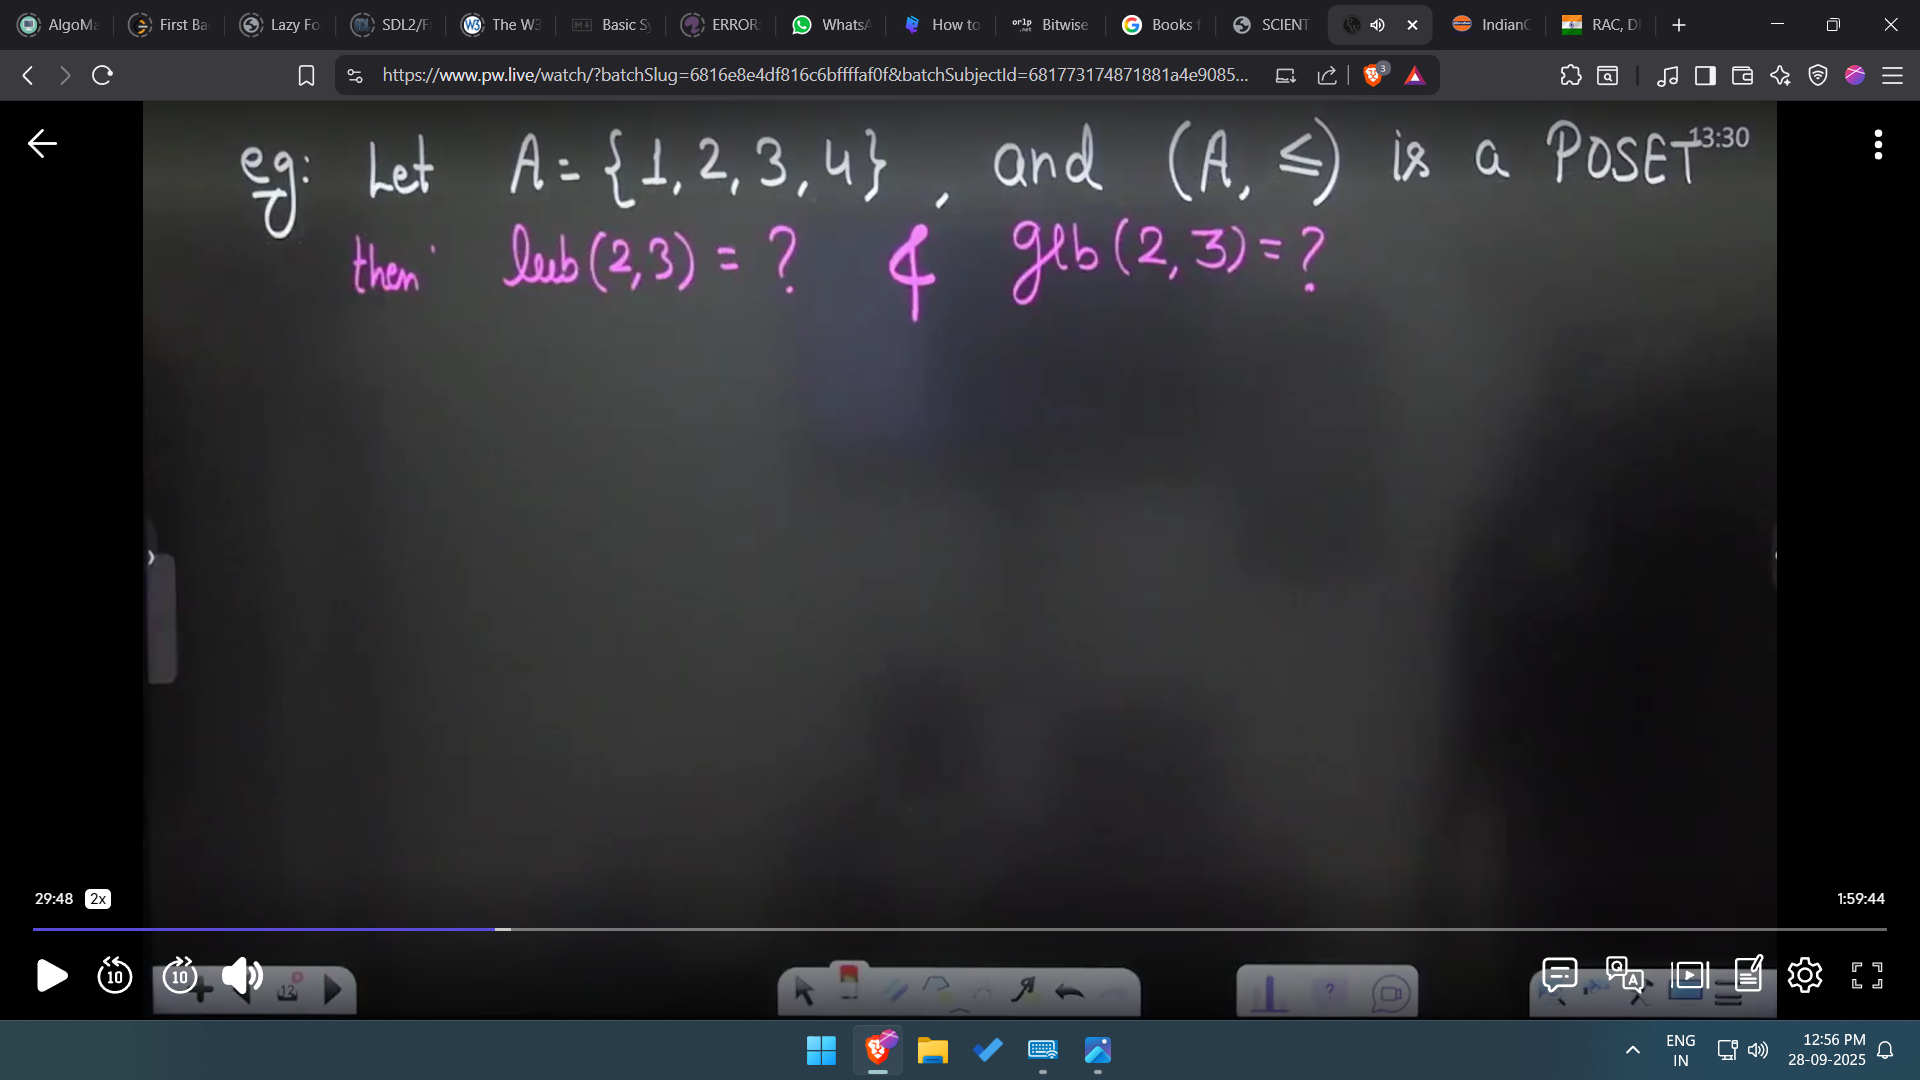 AlgoMa
First Ba
Lazy Fo
SDL2/F
The W3
Basic Sy
ERROR:
WhatsA
How to
orlp .net
Bitwise
Books f
SCIENT
IndianO
RAC, D
https://www.pw.live/watch/?batchSlug=6816e8e4df816c6bffffaf0f&batchSubjectId=681773174871881a4e9085...
3
eg: Let A = {1, 2, 3, 4}, and (A, ≤) is a POSET
13:30
then lub(2,3) = ? & glb(2, 3) = ?
29:48 2x
1:59:44
10
10
12
?
Q A
ENG
IN
12:56 PM
28-09-2025